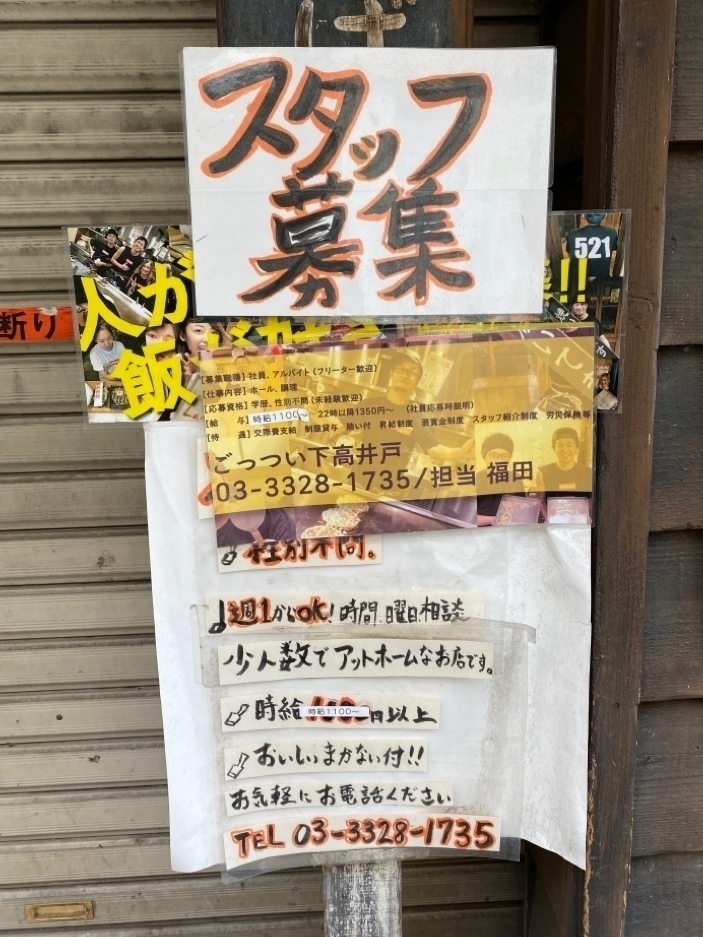 スタッフ
募集
521
人が
飯
!!
断り
【募集職種】社員、アルバイト(フリーター歓迎)
【仕事内容】ホール、調理
【応募資格】学歴、性別不問(未経験歓迎)
【給 与】時給1100〜 22時以降1350円〜 (社員応募時説明)
【待 遇】交際費支給 制服貸与 賄い付 昇給制度 褒賞金制度 スタッフ紹介制度 労災保険等
ごっつい下高井戸
03-3328-1735/担当 福田
性別不問。
週1からOK!時間、曜日、相談
少人数でアットホームなお店です。
時給 時給1100〜 円以上
おいしいまかない付!!
お気軽にお電話ください
TEL 03-3328-1735